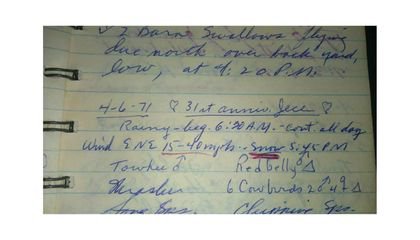 2 Barn Swallows flying
due north over back yard,
low, at 4:20 P.M.
4-6-71 ♡ 31st anniv. Jece ♡
Rainy - beg. 6:30 A.M. - cont. all day
Wind ENE 15-40 mph - Snow 5:45 PM
Towhee ♂ Redbelly
Thrasher 6 Cowbirds 2♂ 4♀
Song Sps. Chipping Sps.